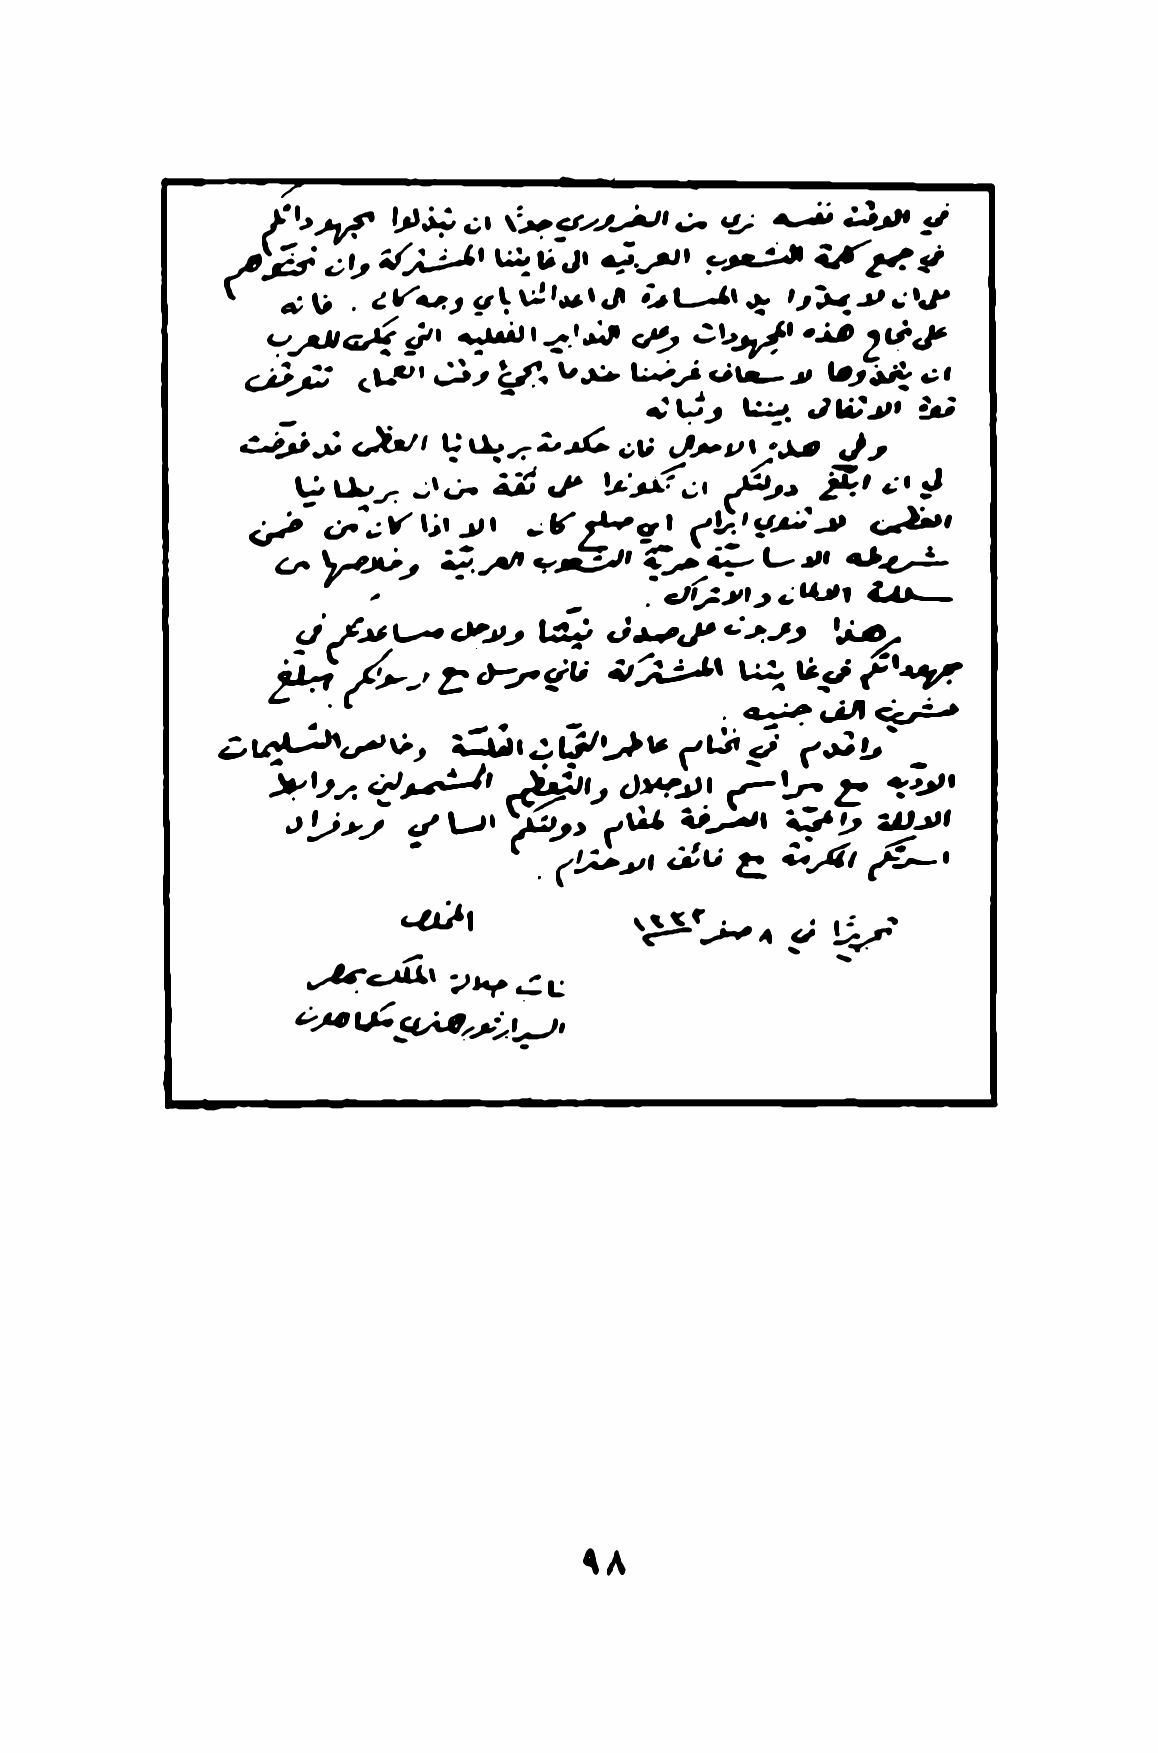 في الوقت نفسه نرى من الضروري جدًا ان تبذلوا مجهوداتكم
في جمع كلمة الشعوب العربية الى غايتنا المشتركة وان تحثوهم
على ان لا يمدّوا يد المساعدة الى اعدائنا بأي وجه كان . فانه
على نجاح هذه المجهودات وعلى التدابير الفعلية التي يمكن للعرب
ان يتخذوها لاسعاف غرضنا عندما يجيء وقت العمل تتوقف
قوة الاتفاق بيننا وثباته
وفي هذه الاحوال فان حكومة بريطانيا العظمى قد فوّضت
لي ان ابلّغ دولتكم ان تكونوا على ثقة من ان بريطانيا
العظمى لا تنوي ابرام اي صلح كان الا اذا كان من ضمن
شروطه الاساسيّة حريّة الشعوب العربيّة وخلاصها من
سلطة الالمان والاتراك .
هذا وعربون على صدق نيّتنا ولاجل مساعدتكم في
مجهوداتكم في غايتنا المشتركة فاني مرسل مع رسولكم مبلغ
عشرين الف جنيه .
واقدم في الختام عاطر التحيّات القلبيّة وخالص التسليمات
الودّية مع مراسم الاجلال والتعظيم المشمولين بروابط
الالفة والمحبّة الصرفة لمقام دولتكم السامي ولافراد
اسرتكم المكرمة مع فائق الاحترام .
تحريرًا في ٨ صفر ١٣٣٤
المخلص
نائب جلالة الملك بمصر
السير ارثور هنري مكماهون
٩٨